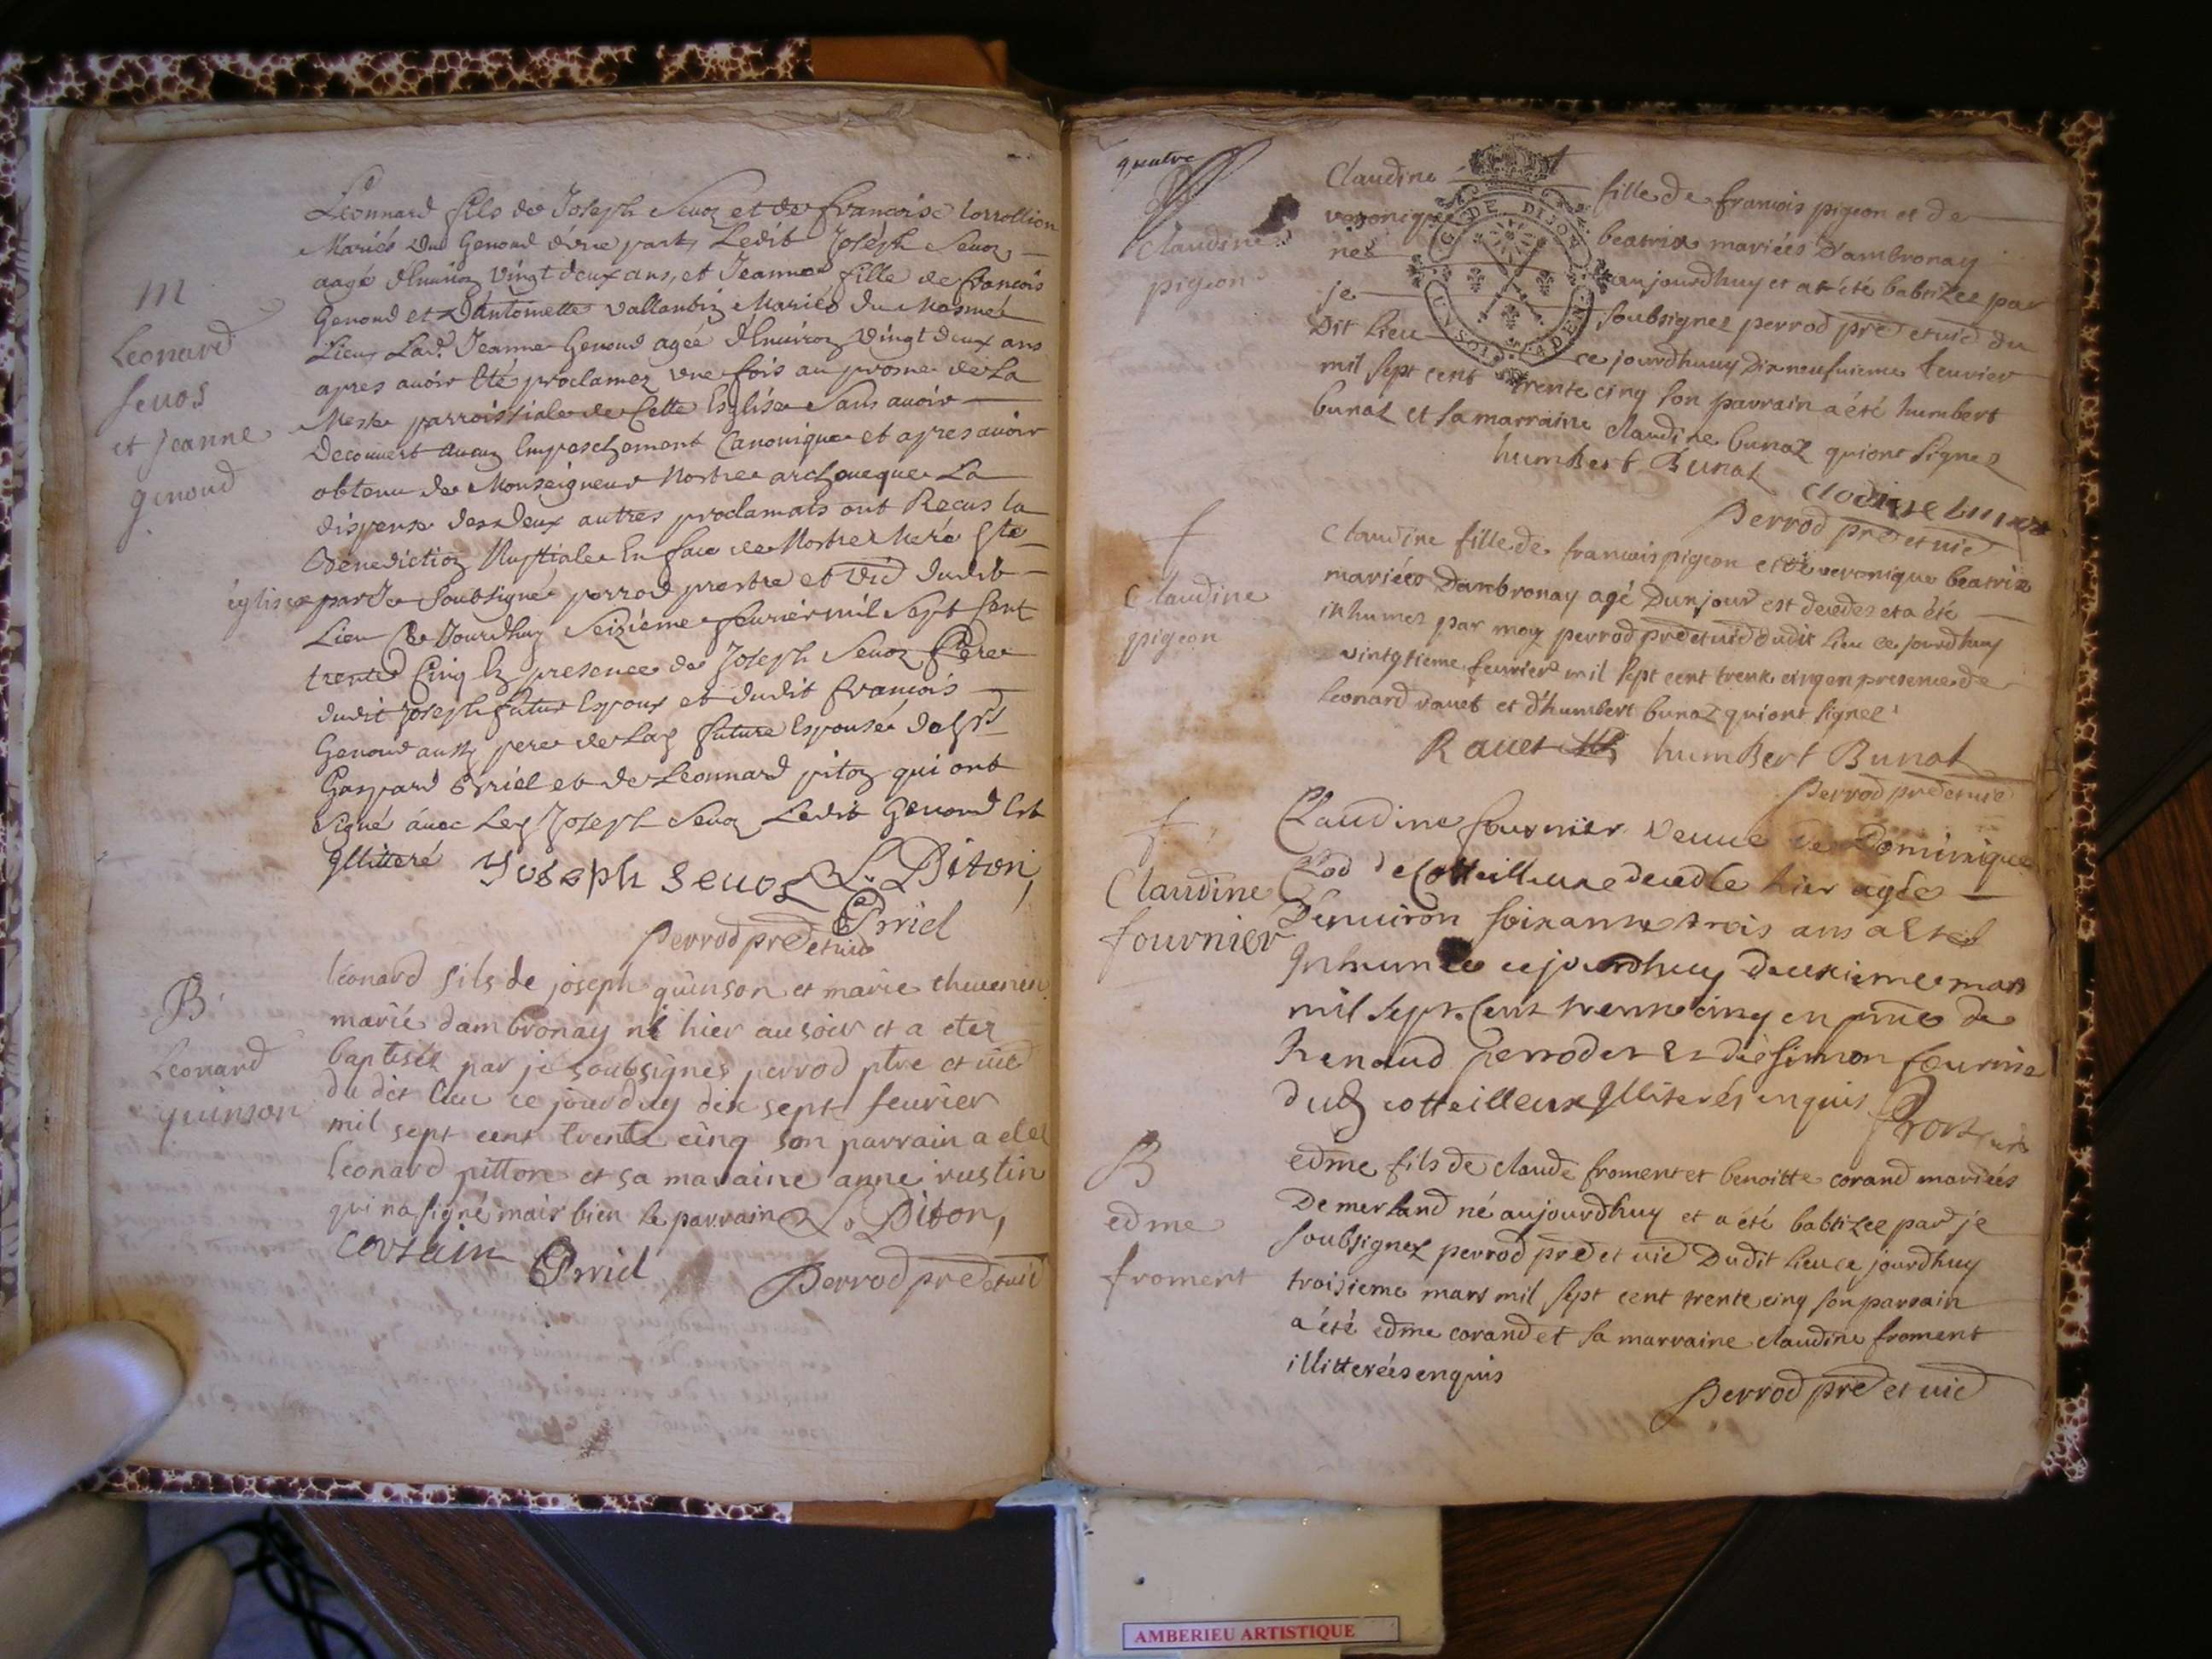 m
Leonard
seuos
et jeanne
genoud
Léonnard fils de Joseph Seuoz et de francoise
Mariés dud Genoud d'une part, Ledit Joseph Seuoz
aagé d'enuiron vingt deux ans, et Jeanne fille de francois
Genoud et d'Antoinette vallantin Mariés du Mesme
Lieu, Lad. Jeanne Genoud agée d'Enuiron vingt deux ans
apres auoir été proclamez une fois au prosne de La
Messe parroissiale de Cette Esglise Sans auoir
Decouuert aucun Empeschement Canonique et apres auoir
obtenu de Monseigneur Nostre archeueque La
dispense des deux autres proclamats ont Recus la
Bénédiction Nuptiale En face de Nostre
église par Je Soubsigné perrod prestre et vic dudit
Lieu Ce Jourdhuy Seizième feurier mil Sept Cent
trente Cinq En presence de Joseph Seuoz Père
dudit Joseph futur Espoux et dudit francois
Genoud aussy pere de Lad future Espouse de
Gaspard Brriel et de Léonnard piton qui ont
Signé auec Led Joseph Seuoz Ledit Genoud Est
Illitteré Yoseph seuoz L. Diton,
Brriel
perrod pre et uic
B
Leonard
quinson
léonard fils de joseph quinson et marie theuenin
marié dambronay né hier au soir et a etez
baptisez par je soubsignés perrod ptre et uic
du dit lieu ce jourduy dix sept feurier
mil sept cent trente cinq son parrain a etez
léonard pitton et sa maraine anne rustin
qui na signé mais bien le parrain L. Diton,
Cortain Brriel perrod pre et uic
quatre
B
claudine
pigeon
claudine fille de francois pigeon et de
veronique beatrix mariées Dambronay
née aujourdhuy et at été babtizee par
je soubsignez perrod pre et uic du
Dit lieu ce jourdhuuy Dixneufuieme feuvier
mil sept cent trente cinq son parrain a été humbert
bunaz et sa marraine claudine bunaz quiont signes
humbert Bunaz
clodine bunaz
perrod pre et uic
f
claudine
pigeon
Claudine fille de francois pigeon et de veronique beatrix
mariées Dambronay agé Dunjour est decedes et a été
inhumez par moy perrod pre et uic dudit lieu ce jourdhuy
vintgtieme feurier mil sept cent trente cinq en presence de
leonard rauet et d'humbert bunaz quiont signez
Rauet humbert Bunat
perrod pre et uic
f
Claudine
fournier
Claudine fournier veuue de Dominique
Clod de Cotteilleuxe decedée hier agée
Denuiron soixante trois ans a Eté
Inhumée ce jourdhuy deuxieme mars
mil sept Cent trente cinq en pnce de
Renaud perrodet Et de simon fournie
dud cotteilleux Illiterés enquis
B
edme
froment
edme fils de claude froment et benoitte corand mariées
De merland né aujourdhuy et a été babtizee par je
soubsignez perrod pre et uic Dudit lieu ce jourdhuy
troisieme mars mil sept cent trente cinq son parrain
a été edme corand et sa marraine claudine froment
illitterées enquis
perrod pre et uic
AMBERIEU ARTISTIQUE